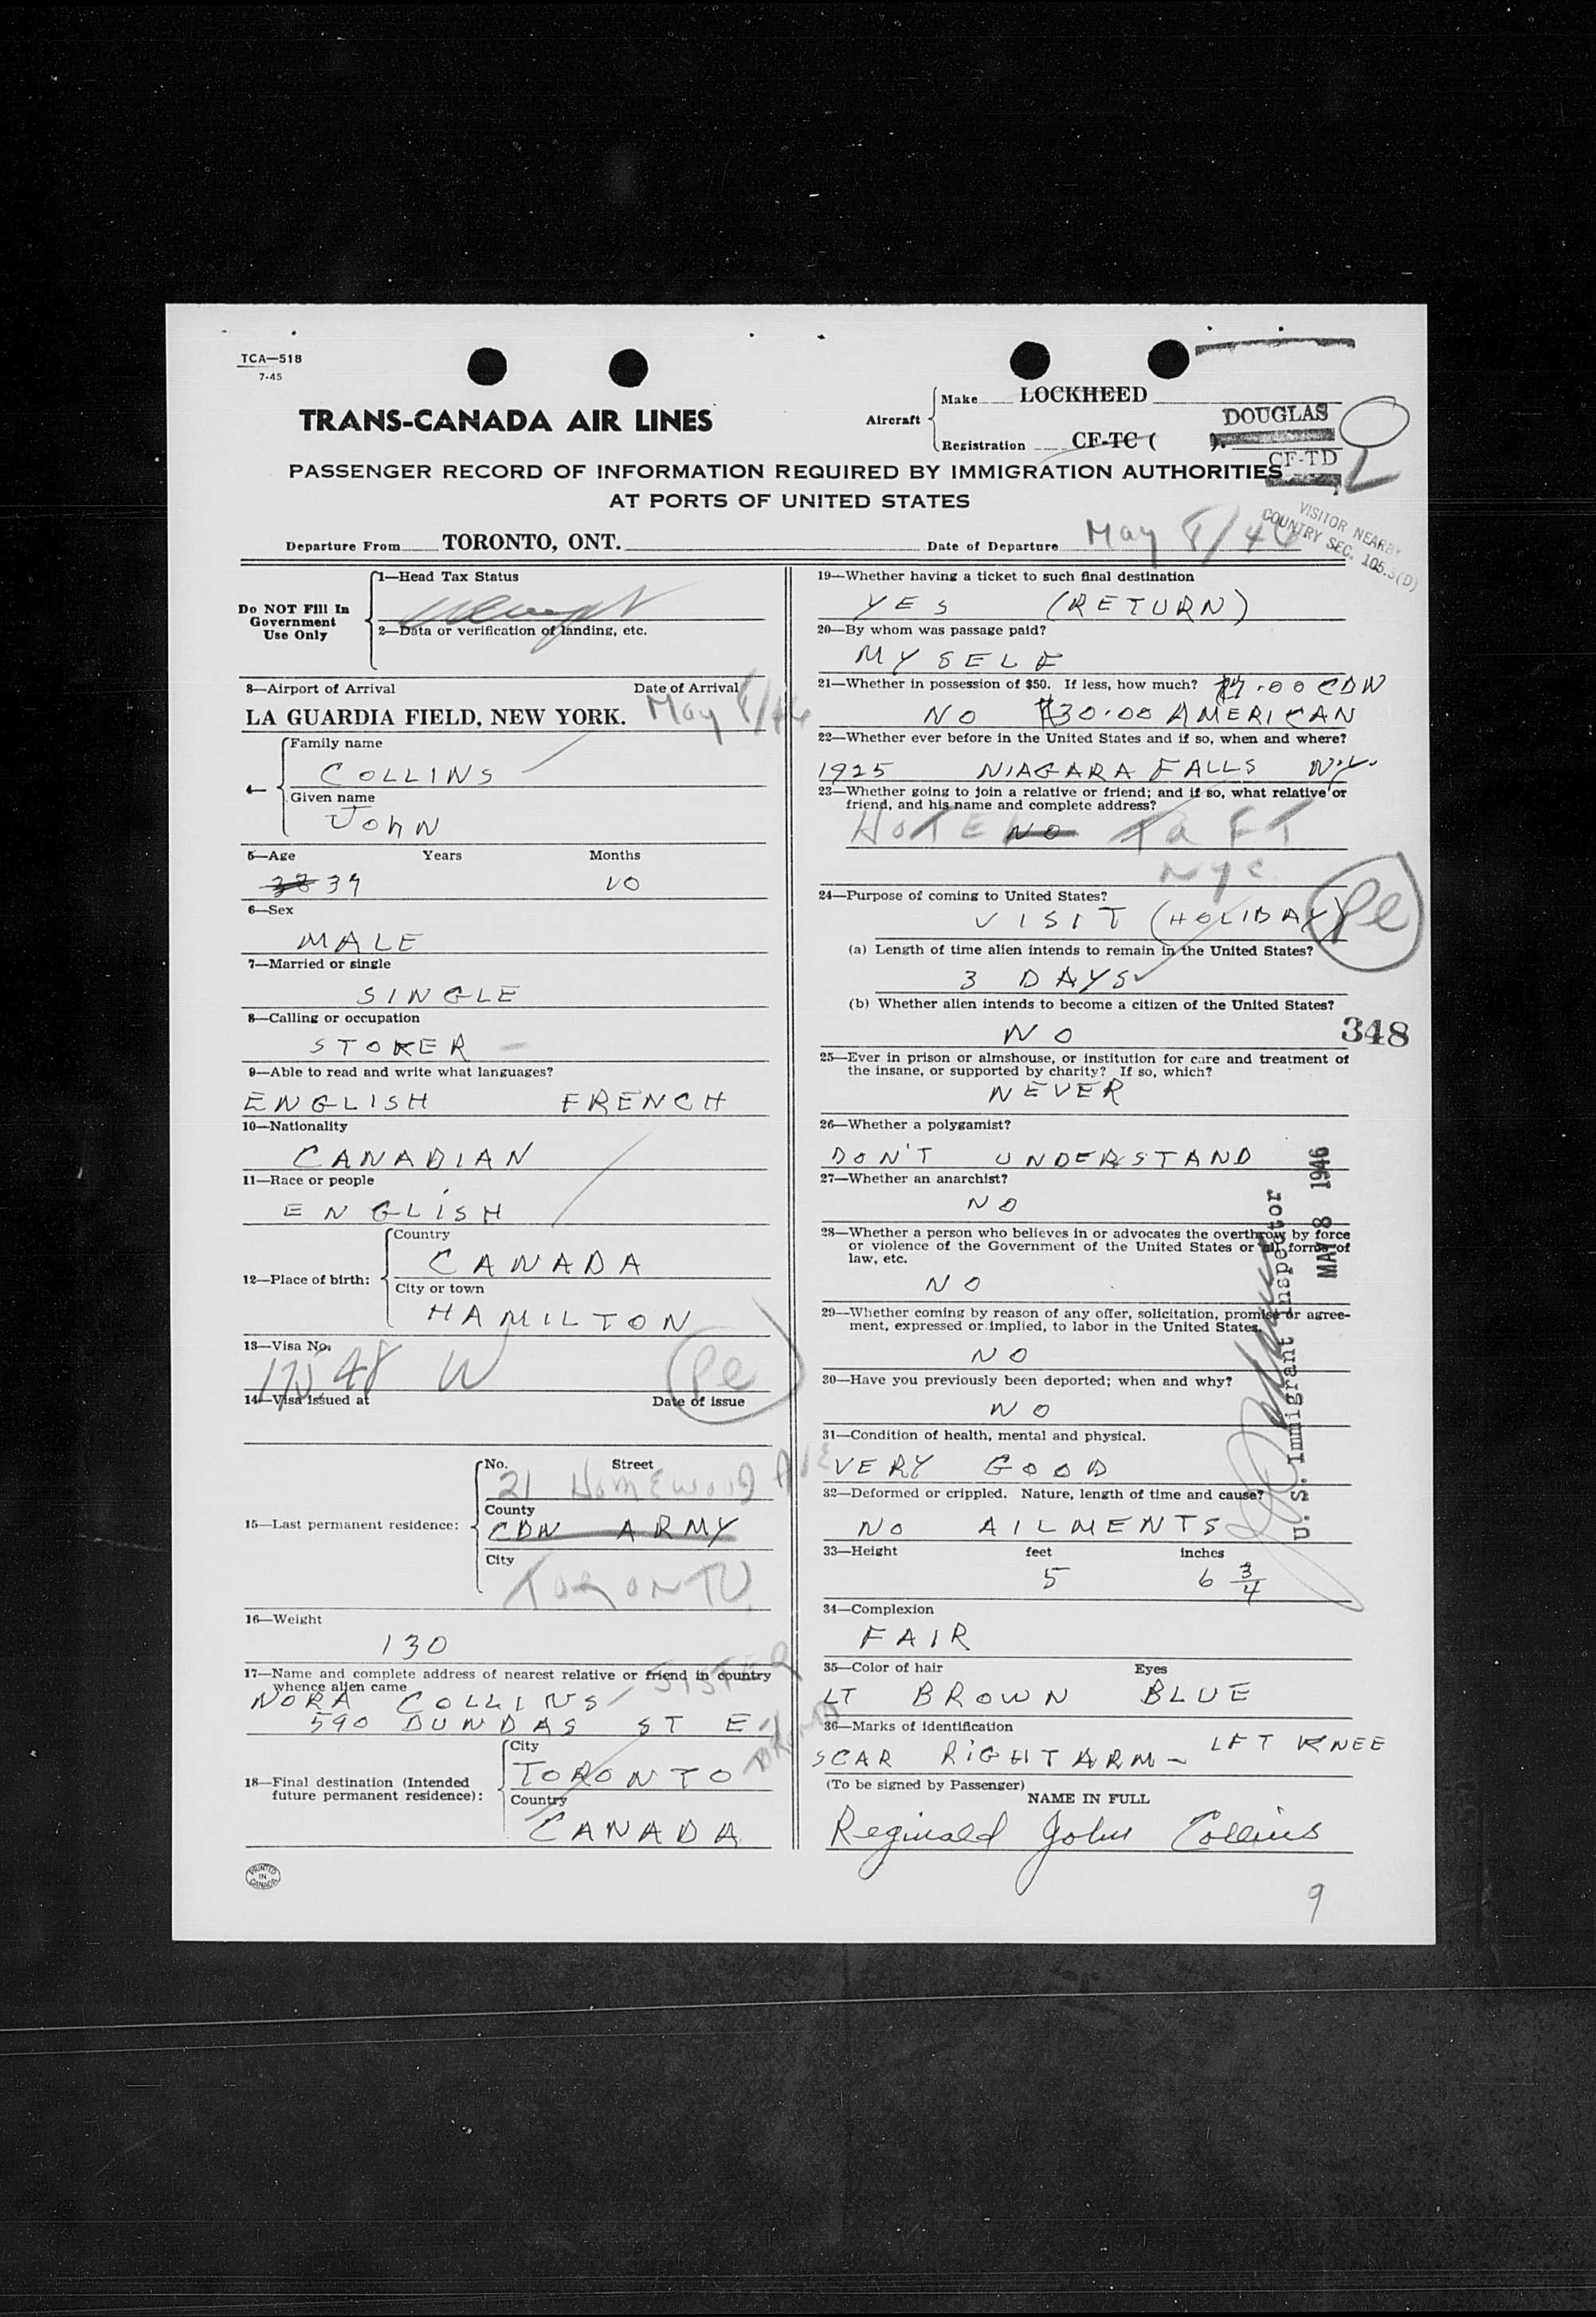 TCA—518
7-45
TRANS-CANADA AIR LINES
Aircraft
Make LOCKHEED
DOUGLAS
Registration CF-TC ( ).
CF-TD
PASSENGER RECORD OF INFORMATION REQUIRED BY IMMIGRATION AUTHORITIES
AT PORTS OF UNITED STATES
VISITOR NEARBY
COUNTRY SEC. 105.3(D)
Departure From TORONTO, ONT. Date of Departure May 8/46
Do NOT Fill In
Government
Use Only
1—Head Tax Status
2—Data or verification of landing, etc.
3—Airport of Arrival Date of Arrival
LA GUARDIA FIELD, NEW YORK. May 8/46
4—
Family name
COLLINS
Given name
JOHN
5—Age Years Months
38 39 10
6—Sex
MALE
7—Married or single
SINGLE
8—Calling or occupation
STOKER
9—Able to read and write what languages?
ENGLISH FRENCH
10—Nationality
CANADIAN
11—Race or people
ENGLISH
12—Place of birth:
Country
CANADA
City or town
HAMILTON
13—Visa No.
W
14—Visa issued at Date of issue
Pe
15—Last permanent residence:
No. Street
21 HOMEWOOD AVE
County
CDN ARMY
City
TORONTO
16—Weight
130
17—Name and complete address of nearest relative or friend in country
whence alien came
SISTER
NORA COLLINS
590 DUNDAS ST E
TORONTO
18—Final destination (Intended
future permanent residence):
City
TORONTO
Country
CANADA
PRINTED
IN
CANADA
19—Whether having a ticket to such final destination
YES (RETURN)
20—By whom was passage paid?
MYSELF
21—Whether in possession of $50. If less, how much? .00 CDN
NO $30.00 AMERICAN
22—Whether ever before in the United States and if so, when and where?
1925 NIAGARA FALLS N.Y.
23—Whether going to join a relative or friend; and if so, what relative or
friend, and his name and complete address?
HOTEL NO TAFT
NYC
24—Purpose of coming to United States?
VISIT (HOLIDAY)
Pe
(a) Length of time alien intends to remain in the United States?
3 DAYS
(b) Whether alien intends to become a citizen of the United States?
NO
348
25—Ever in prison or almshouse, or institution for care and treatment of
the insane, or supported by charity? If so, which?
NEVER
26—Whether a polygamist?
DON'T UNDERSTAND
27—Whether an anarchist?
NO
28—Whether a person who believes in or advocates the overthrow by force
or violence of the Government of the United States or all forms of
law, etc.
NO
29—Whether coming by reason of any offer, solicitation, promise or agree-
ment, expressed or implied, to labor in the United States.
NO
30—Have you previously been deported; when and why?
NO
31—Condition of health, mental and physical.
VERY GOOD
32—Deformed or crippled. Nature, length of time and cause?
NO AILMENTS
33—Height feet inches
5 6 3/4
34—Complexion
FAIR
35—Color of hair Eyes
LT BROWN BLUE
36—Marks of identification
SCAR RIGHT ARM - LFT KNEE
(To be signed by Passenger)
NAME IN FULL
Reginald John Collins
U. S. Immigrant Inspector
MAY 8 1946
9